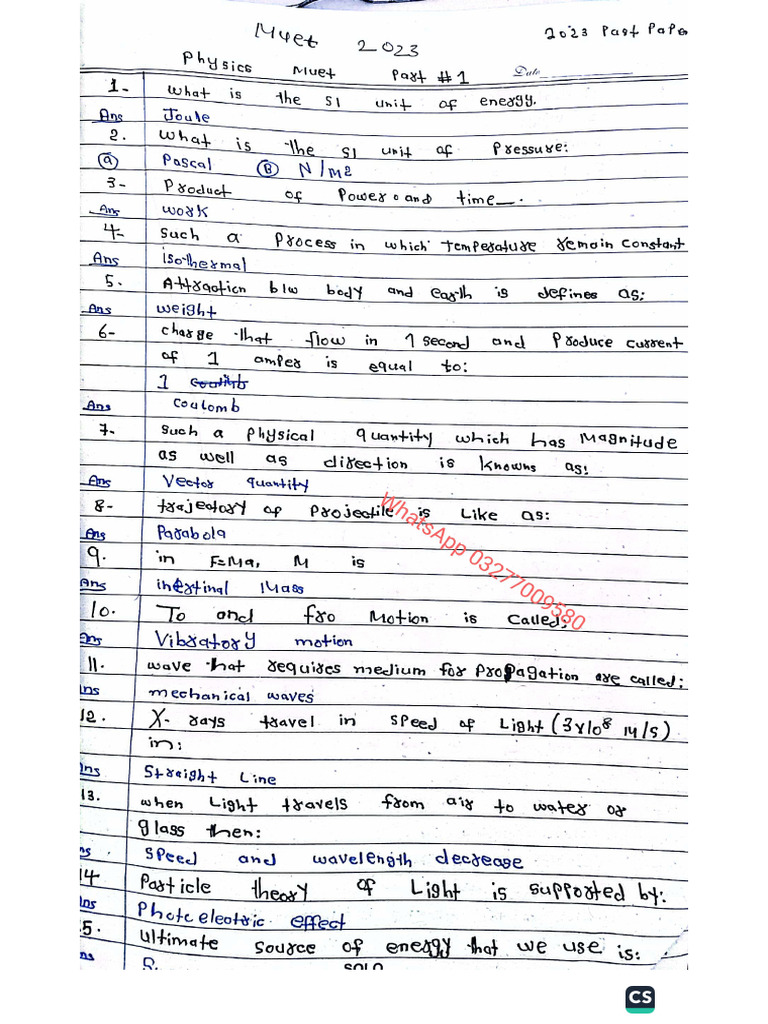 Muet 2023
2023 Past Paper
Physics Muet Part #1 Date
1- What is the SI unit of energy.
Ans Joule
2. What is the SI unit of Pressure:
(a) Pascal (B) N/M2
3- Product of Power and time —.
Ans work
4- such a Process in which Temperature remain constant
Ans isothermal
5. Attraction b/w body and earth is defines as:
Ans weight
6- charge that flow in 1 second and Produce current
of 1 amper is equal to:
1
Ans Coulomb
7- such a Physical quantity which has Magnitude
as well as direction is knowns as:
Ans Vector quantity
8- trajectory of Projectile is Like as:
Ans Parabola
9. in F=Ma, M is
Ans inertinal Mass
10. To and fro Motion is Called:
Ans Vibratory motion
11. wave that requires medium for Propagation are called:
Ans mechanical waves
12. X- rays travel in speed of Light (3x10⁸ M/s)
in:
Ans Straight Line
13. when Light travels from air to water or
glass then:
Ans speed and wavelength decrease
14 Particle theory of Light is supported by:
Ans Photo electric effect
15. Ultimate source of energy that we use is:
Ans S.
WhatsApp 03277009580
CS